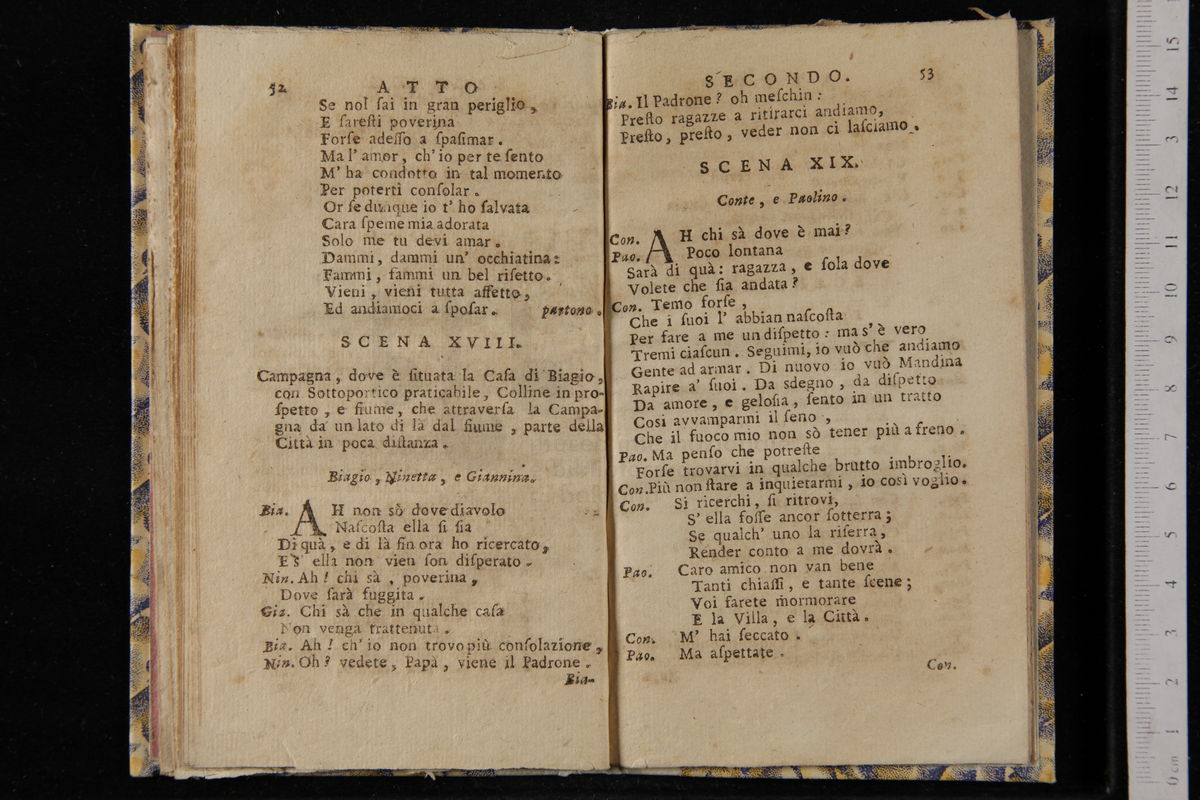 52 ATTO
Se nol ſai in gran periglio,
E ſareſti poverina
Forſe adeſſo a ſpaſimar.
Ma l' amor, ch' io per te ſento
M' ha condotto in tal momento
Per poterti conſolar.
Or ſe dunque io t' ho ſalvata
Cara ſpeme mia adorata
Solo me tu devi amar.
Dammi, dammi un' occhiatina:
Fammi, fammi un bel riſetto.
Vieni, vieni tutta affetto,
Ed andiamoci a ſpoſar. partono.
SCENA XVIII.
Campagna, dove è ſituata la Caſa di Biagio,
con Sottoportico praticabile, Colline in pro-
ſpetto, e fiume, che attraverſa la Campa-
gna da un lato di là dal fiume, parte della
Città in poca diſtanza.
Biagio, Ninetta, e Giannina.
Bia. AH non sò dove diavolo
Naſcoſta ella ſi ſia
Di quà, e di là fin ora ho ricercato,
E s' ella non vien ſon diſperato.
Nin. Ah! chi sà, poverina,
Dove ſarà fuggita.
Gia. Chi sà che in qualche caſa
Non venga trattenuta.
Bia. Ah! ch' io non trovo più conſolazione,
Nin. Oh? vedete, Papà, viene il Padrone.
Bia-
SECONDO. 53
Bia. Il Padrone? oh meſchin:
Preſto ragazze a ritirarci andiamo,
Preſto, preſto, veder non ci laſciamo.
SCENA XIX.
Conte, e Paolino.
Con. AH chi sà dove è mai?
Pao. Poco lontana
Sarà di quà: ragazza, e ſola dove
Volete che ſia andata?
Con. Temo forſe,
Che i ſuoi l' abbian naſcoſta
Per fare a me un diſpetto: ma s' è vero
Tremi ciaſcun. Seguimi, io vuò che andiamo
Gente ad armar. Di nuovo io vuò Mandina
Rapire a' ſuoi. Da sdegno, da diſpetto
Da amore, e geloſia, ſento in un tratto
Cosi avvamparmi il ſeno,
Che il fuoco mio non sò tener più a freno.
Pao. Ma penſo che potreſte
Forſe trovarvi in qualche brutto imbroglio.
Con. Più non ſtare a inquietarmi, io così voglio.
Con. Si ricerchi, ſi ritrovi,
S' ella foſſe ancor ſotterra;
Se qualch' uno la riſerra,
Render conto a me dovrà.
Pao. Caro amico non van bene
Tanti chiaſſi, e tante ſcene;
Voi farete mormorare
E la Villa, e la Città.
Con. M' hai ſeccato.
Pao. Ma aſpettate.
Con.
0 cm 1 2 3 4 5 6 7 8 9 10 11 12 13 14 15